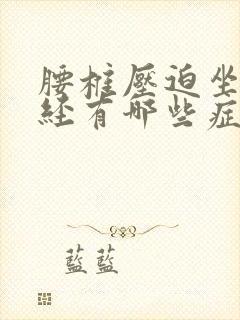 腰椎壓迫坐
經有哪些症
藍藍